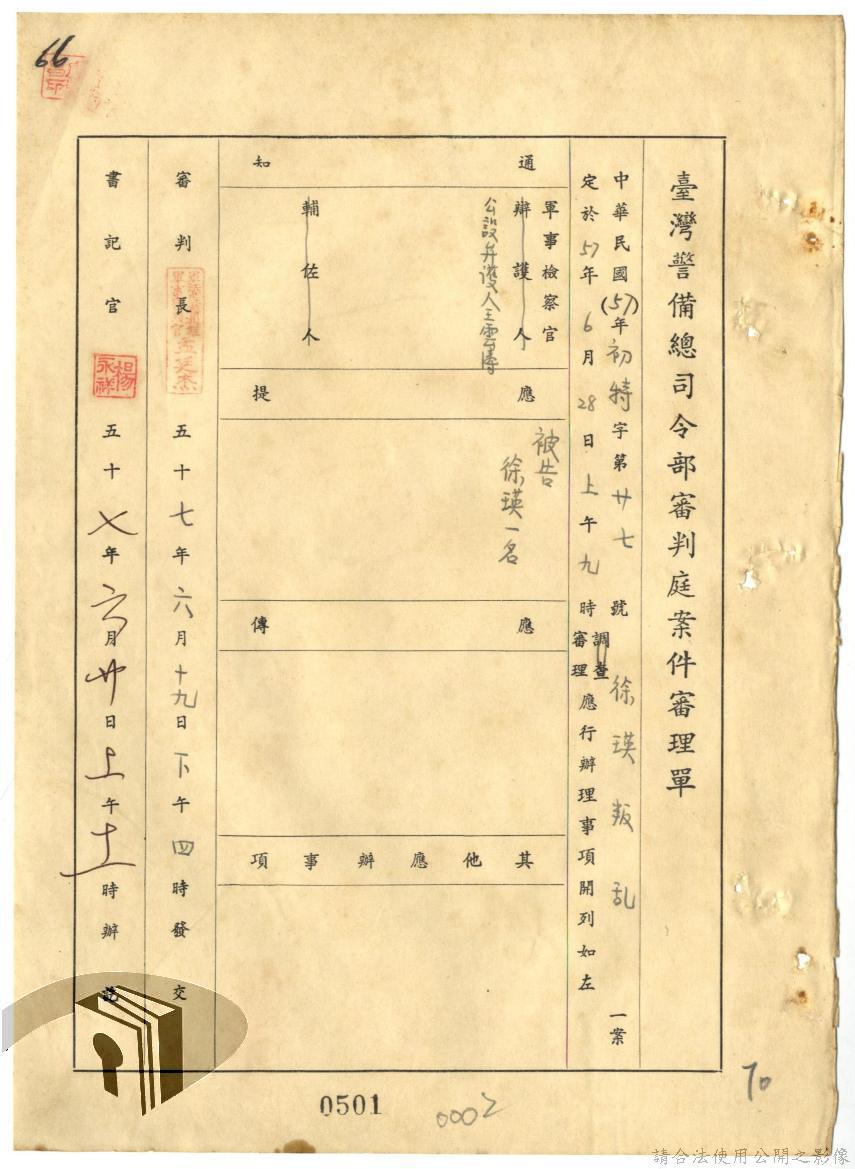 66
臺灣警備總司令部審判庭案件審理單
中華民國(57)年初特字第廿七號徐瑛叛乱一案
定於57年6月28日上午九時調查審理應行辦理事項開列如左
通知
軍事檢察官
辦護人
公設弁護人王雲濤
輔佐人
應提
被告
徐瑛一名
應傳
其他應辦事項
審判長
五十七年六月十九日下午四時發交
書記官
楊永祥
五十七年六月廿日上午十一時辦訖
0501
0002
70
請合法使用公開之影像